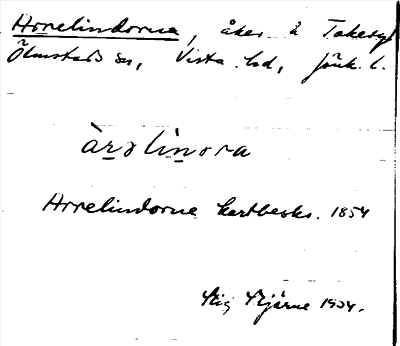 Arrelindorna, åker å Takeryd
Ölmstads sn, Vista hd, Jönk. l.
àrəlinəra
Arrelindorne kartbeskr. 1854
Stig Stjärne 1934.